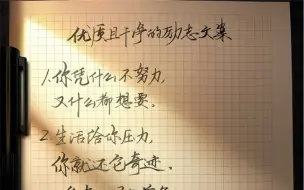 优质且干净的励志文案
1.你凭什么不努力
又什么都想要。
2.生活给你压力,
你就还它奇迹、